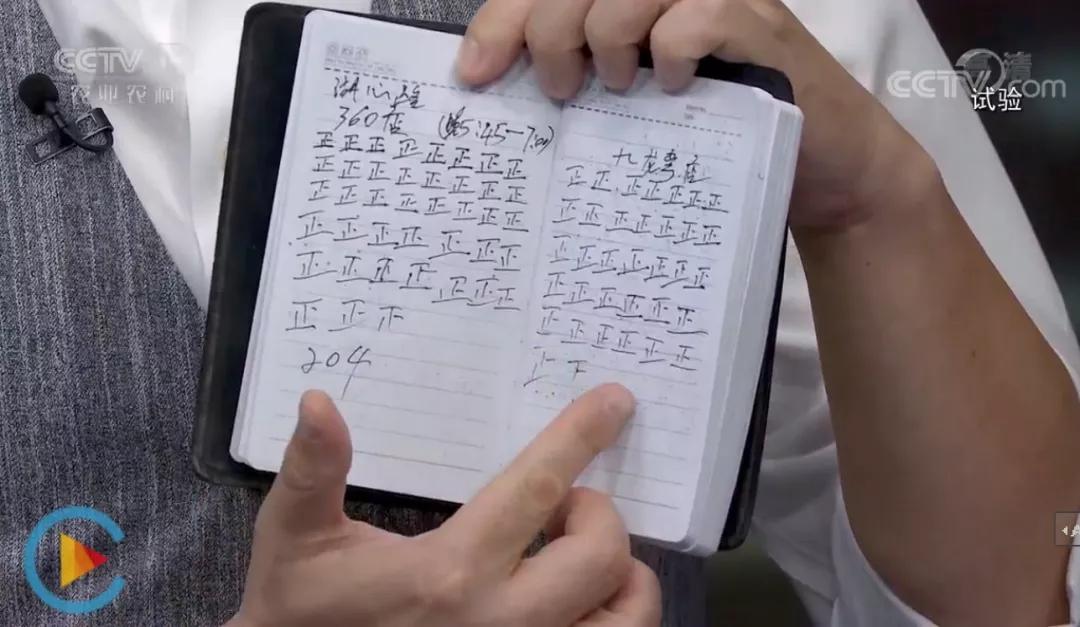 CCTV
农业农村
CCTV.com
试验
360
(5:45-7:00)
正正正正正正正正
正正正正正正正正
正正正正正正正正
正正正正正正正
正正正正正正正
正正
204
九龙
正正正正正正正
正正正正正正正
正正正正正正正
正正正正正正
正正正正正正
正下